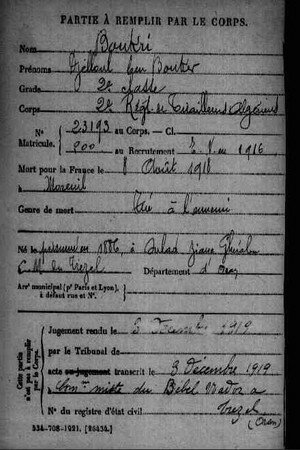 PARTIE À REMPLIR PAR LE CORPS.
Nom Boukri
Prénoms Djelloul ben Bouter
Grade 2e classe
Corps 2e Régt de Tirailleurs Algériens
N° 23193 au Corps. — Cl.
Matricule. 900 au Recrutement 1916
Mort pour la France le 8 Août 1918
à Moreuil
Genre de mort Tué à l'ennemi
Né le présumé en 1886, à Oulad
C. Mte de Trézel Département d'Oran
Arrt municipal (pr Paris et Lyon),
à défaut rue et N°.
Cette partie n'est pas à remplir par le Corps.
Jugement rendu le 3 1919
par le Tribunal de
acte ou jugement transcrit le 3 décembre 1919
à comne mixte du Djebel Nador à
Trézel
N° du registre d'état civil (Oran)
534-708-1921. [26434.]